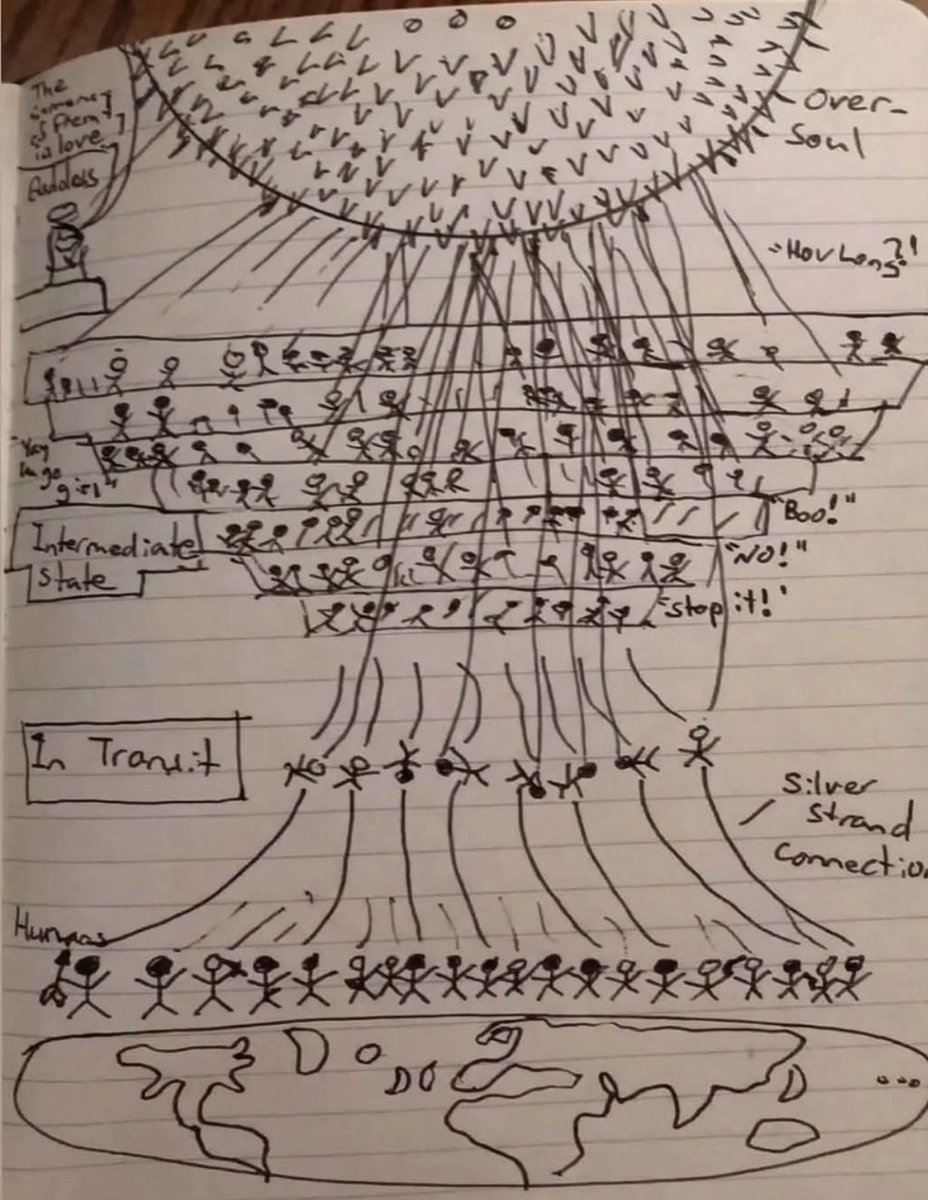 The
is
in love
Goddess
Over-
Soul
"How Long?!"
"Yay
girl"
"Boo!"
Intermediate
State
"NO!"
"Stop it!"
In Transit
Silver
Strand
Connection
Humans